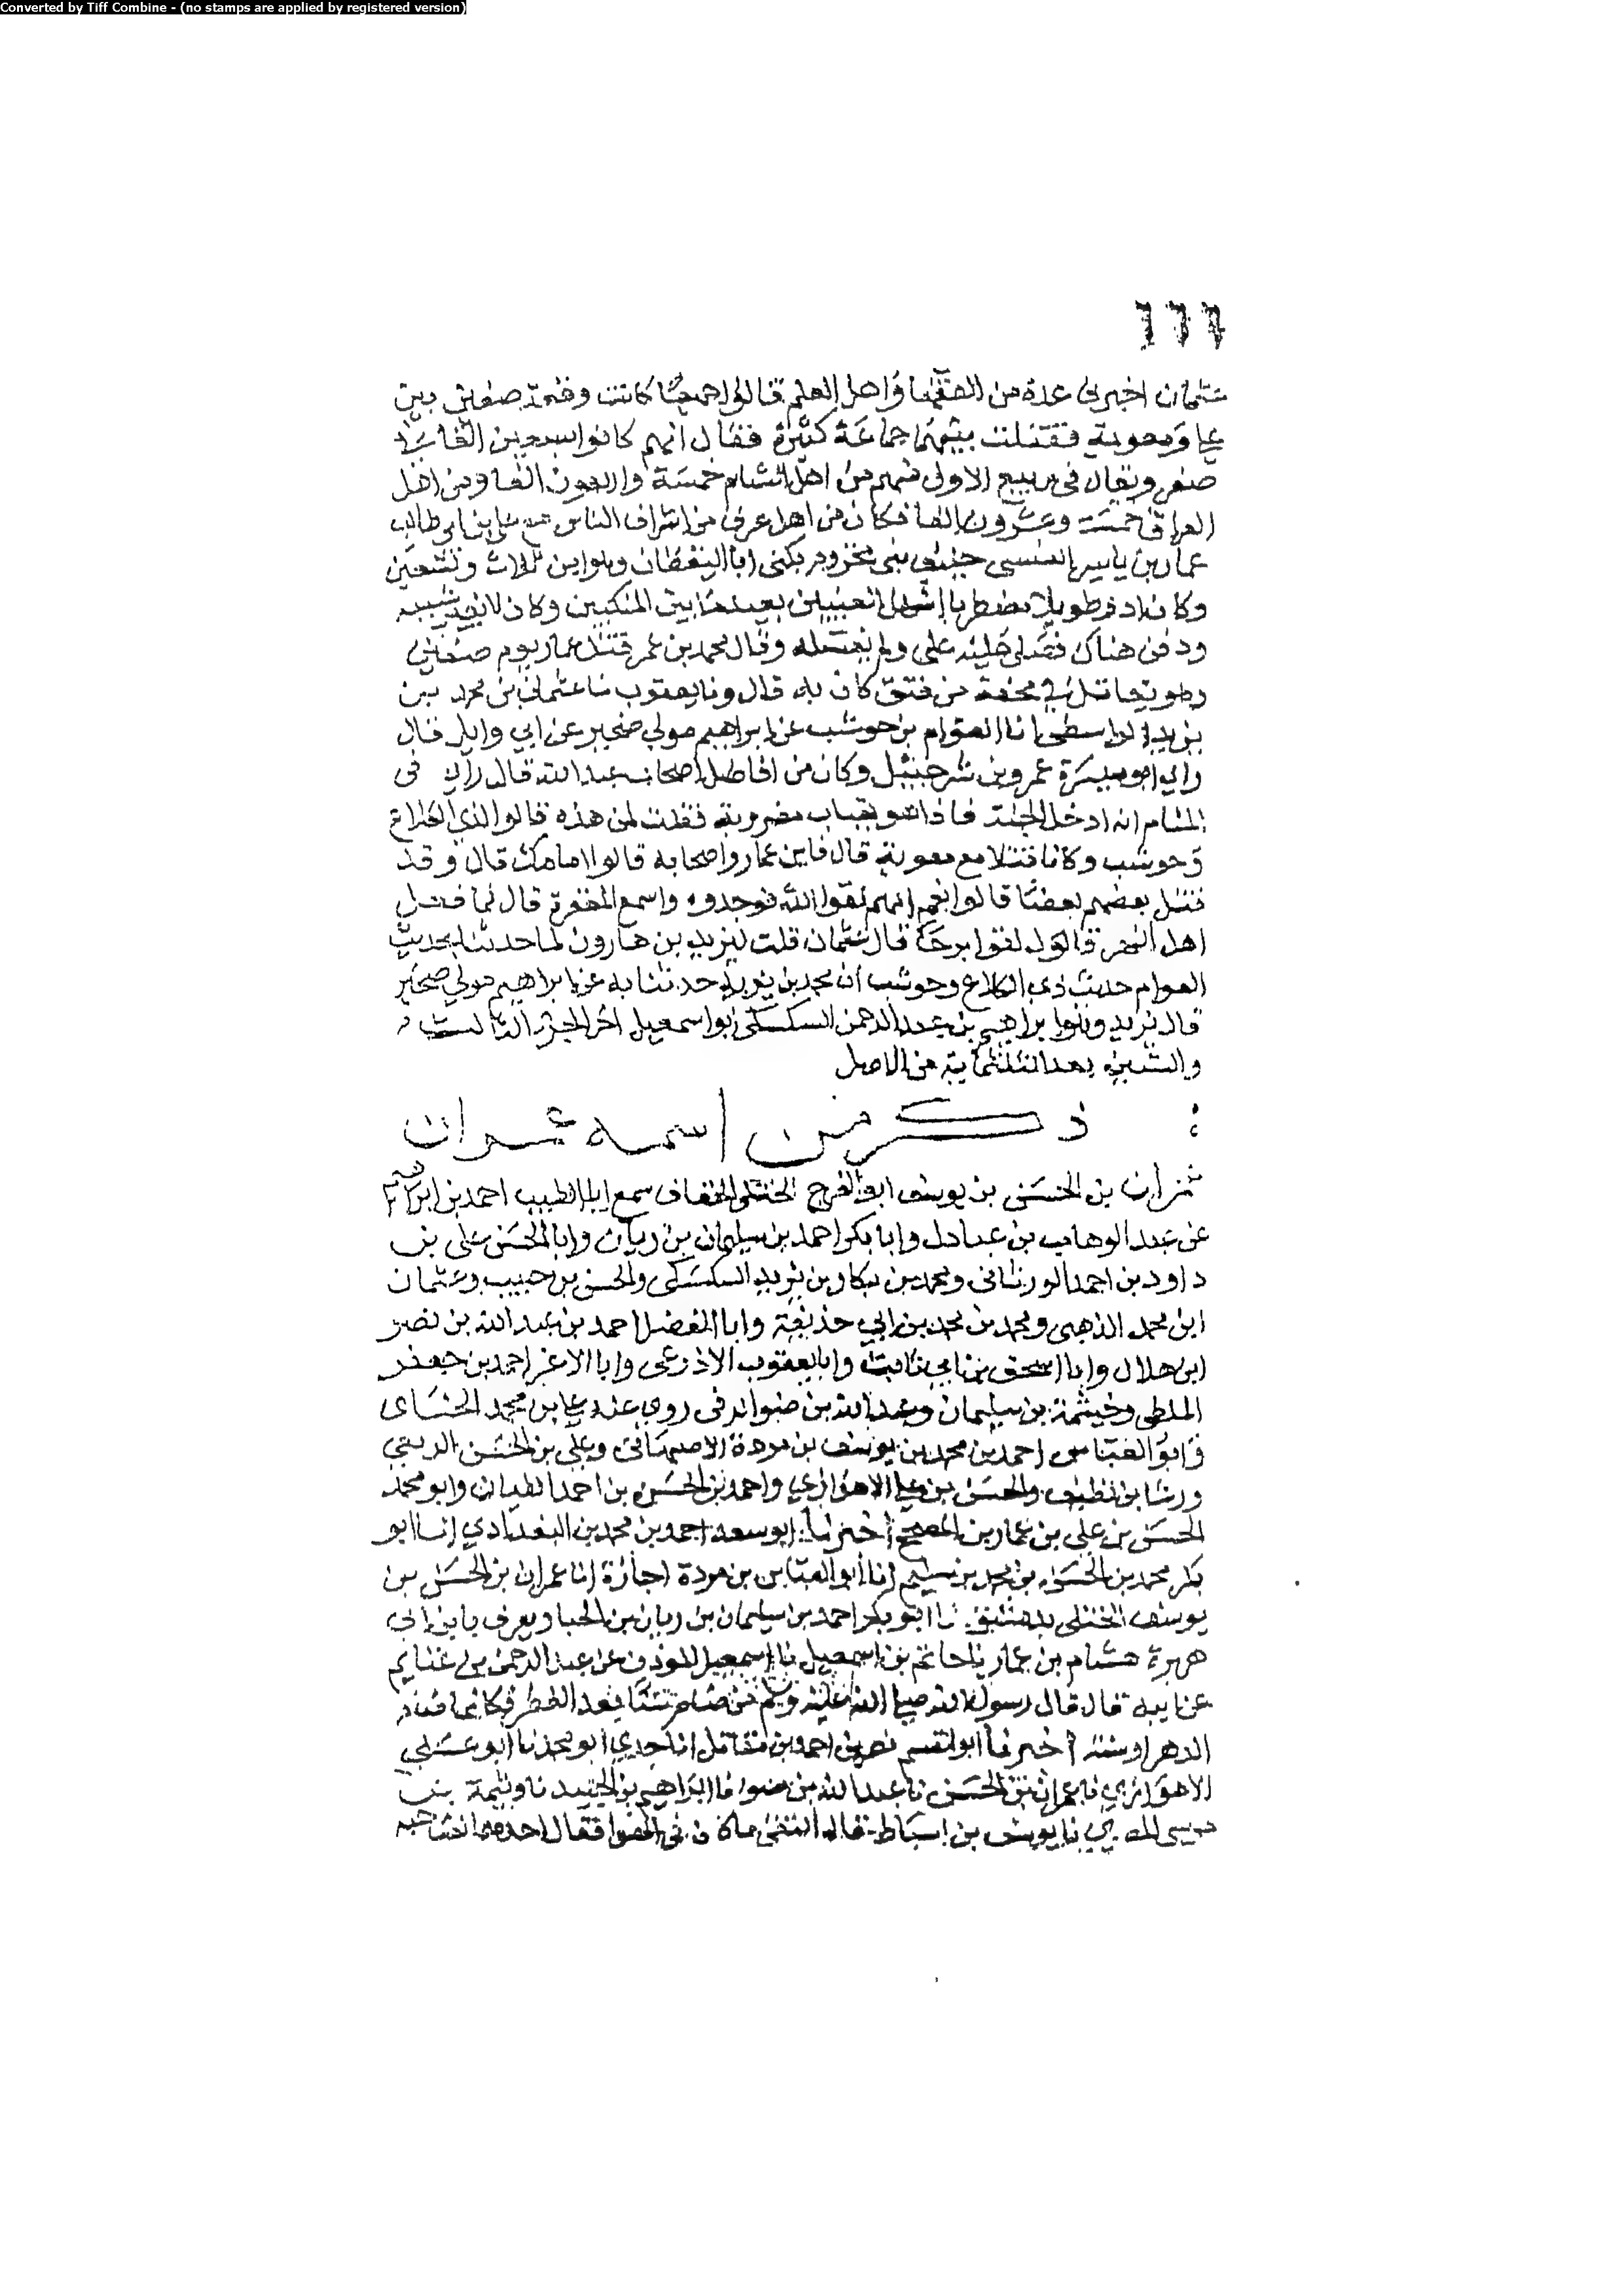 Converted by Tiff Combine - (no stamps are applied by registered version)
٦٦٦
عثمان اخبرني عدة من الفقها واهل العلم قالوا جميعا كانت وقعة صفين بين
علي ومعوية فقتلت بينهما جماعة كثيرة فقال انهم كانوا سبعين الفا في
صفر ويقال في ربيع الاول منهم من اهل الشام خمسة واربعون الفا ومن اهل
العراق خمسة وعشرون الفا فكان من اهل عرف من اشراف الناس مع علي بن ابي طالب
عمار بن ياسر العنسي حليف بني مخزوم يكنى ابا اليقظان وهو ابن ثلاث وتسعين
وكان ادم طويلا مضطربا اشهل العينين بعيد ما بين المنكبين وكان لا يغير شيبه
ودفن هناك فصلى عليه علي ولم يغسله وقال محمد بن عمر قتل عمار يوم صفين
وهو يقاتل في محفة من فتق كان به قال ونا يعقوب نا عثمان بن محمد بن
يزيد الواسطي انا العوام بن حوشب عن ابراهيم مولى صخير عن ابي وايل قال
راى ابو ميسرة عمرو بن شرحبيل وكان من افاضل اصحاب عبد الله قال راى في
المنام انه ادخل الجنة فاذا هو بقباب مضروبة فقلت لمن هذه قالوا لذي الكلاع
وحوشب وكانا قتلا مع معوية قال فاين عمار واصحابه قالوا امامك قال وقد
قتل بعضهم بعضا قالوا نعم انهم لقوا الله فوجدوه واسع المغفرة قال فما فعل
اهل النهر قالوا لقوا برحا قال عثمان قلت ليزيد بن هارون لما حدثنا بحديث
العوام حديث ذي الكلاع وحوشب ان محمد بن يزيد حدثنا به عن ابراهيم مولى صخير
قال يزيد وهو ابراهيم بن عبد الرحمن السكسكي ابو اسمعيل اخر الجزو الثالث
بعد الثلثماية من الاصل
ذكر من اسمه عمران
عمران بن الحسن بن يوسف ابو الفرج الختلي الخفاف سمع ابا الطيب احمد بن ابراهيم
عن عبد الوهاب بن عبادل وابا بكر احمد بن سليمان بن ريان وابا الحسن علي بن
داود بن احمد الورثاني ومحمد بن بكار بن يزيد السكسكي والحسن بن حبيب وعثمان
ابن محمد الذهبي ومحمد بن محمد بن ابي حذيفة وابا الفضل احمد بن عبد الله بن نصر
ابن هلال وابا اسحق بن ابي ثابت وابا يعقوب الاذرعي وابا الاغر احمد بن جعفر
الملطي وخيثمة بن سليمان وعبد الله بن روى عنه علي بن محمد الحنائي
وابو العباس احمد بن محمد بن يوسف بن مردة الاصبهاني وعلي بن الحسن الربعي
ورشا بن نظيف والحسن بن علي الاهوازي واحمد بن الحسن بن احمد الطيان وابو محمد
الحسن بن علي بن عمار بن اخبرنا ابو سعد احمد بن محمد بن البغدادي انا ابو
بكر محمد بن الحسن بن محمد بن سليم انا ابو العباس بن مردة اجازة انا عمران بن الحسن بن
يوسف الختلي بدمشق نا ابو بكر احمد بن سليمان بن ريان بن الحباو يعرف بابن ابي
هريرة هشام بن عمار نا حاتم بن اسمعيل نا اسمعيل المؤذن عن عبد الرحمن بن غنايم
عن ابيه قال قال رسول الله صلى الله عليه وسلم من صام ستا بعد الفطر فكانما صام
الدهر او سنة اخبرنا ابو القسم نصر بن احمد بن مقاتل انا جدي ابو محمد نا ابو علي
الاهوازي نا عمران بن الحسن نا عبد الله بن نا ابراهيم بن الجنيد نا وثيمة بن
موسى نا يوسف بن اسباط قال التقى ملكان في الهوا فقال احدهما لصاحبه